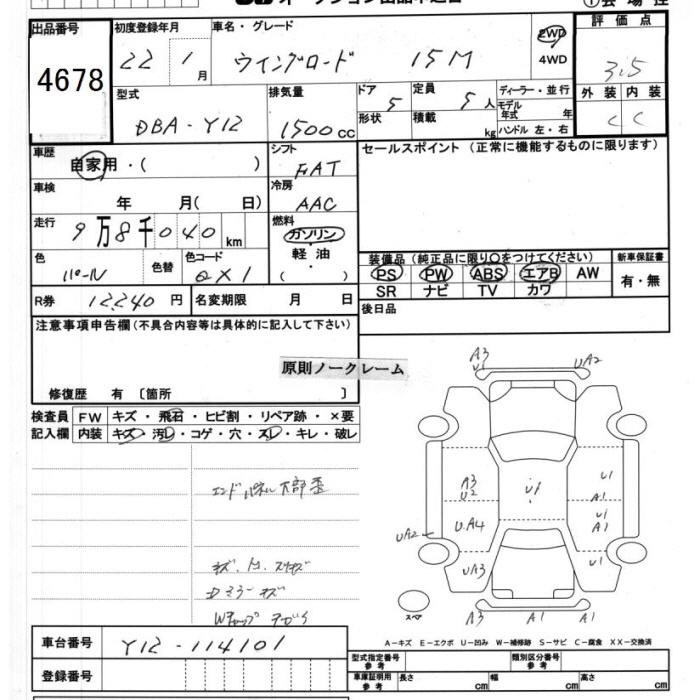 出品番号
4678
初度登録年月
22 1月
車名・グレード
ウイングロード 15M
2WD
4WD
評価点
3.5
外装 内装
C C
型式
DBA-Y12
排気量
1500cc
ドア
5
定員
5人
形状
積載
kg
ディーラー・並行
モデル年式 年
ハンドル 左・右
車歴
自家用・( )
シフト
FAT
冷房
AAC
車検
年 月( 日)
走行
9万8千040km
燃料
ガソリン
軽油
・
( )
色
パール
色替
色コード
QX1
R券
12240円
名変期限 月 日
セールスポイント (正常に機能するものに限ります)
装備品 (純正品に限り○をつけてください)
PS PW ABS エアB AW
SR ナビ TV カワ
新車保証書
有・無
後日品
注意事項申告欄 (不具合内容等は具体的に記入して下さい)
原則ノークレーム
修復歴 有 〔箇所 〕
検査員記入欄
FW キズ・飛石・ヒビ割・リペア跡・×要
内装 キズ・汚レ・コゲ・穴・スレ・キレ・破レ
エンドパネル
ミラー キズ
A3
U1
UA2
A3
U2
U1
U1
A1
A1
U.A4
UA2
UA3
U1
スペア
A3
A1
A1
A-キズ E-エクボ U-凹み W-補修跡 S-サビ C-腐食 XX-交換済
車台番号
Y12-114101
登録番号
型式指定番号 参考
類別区分番号 参考
車庫証明用 参考
長さ cm
幅 cm
高さ cm